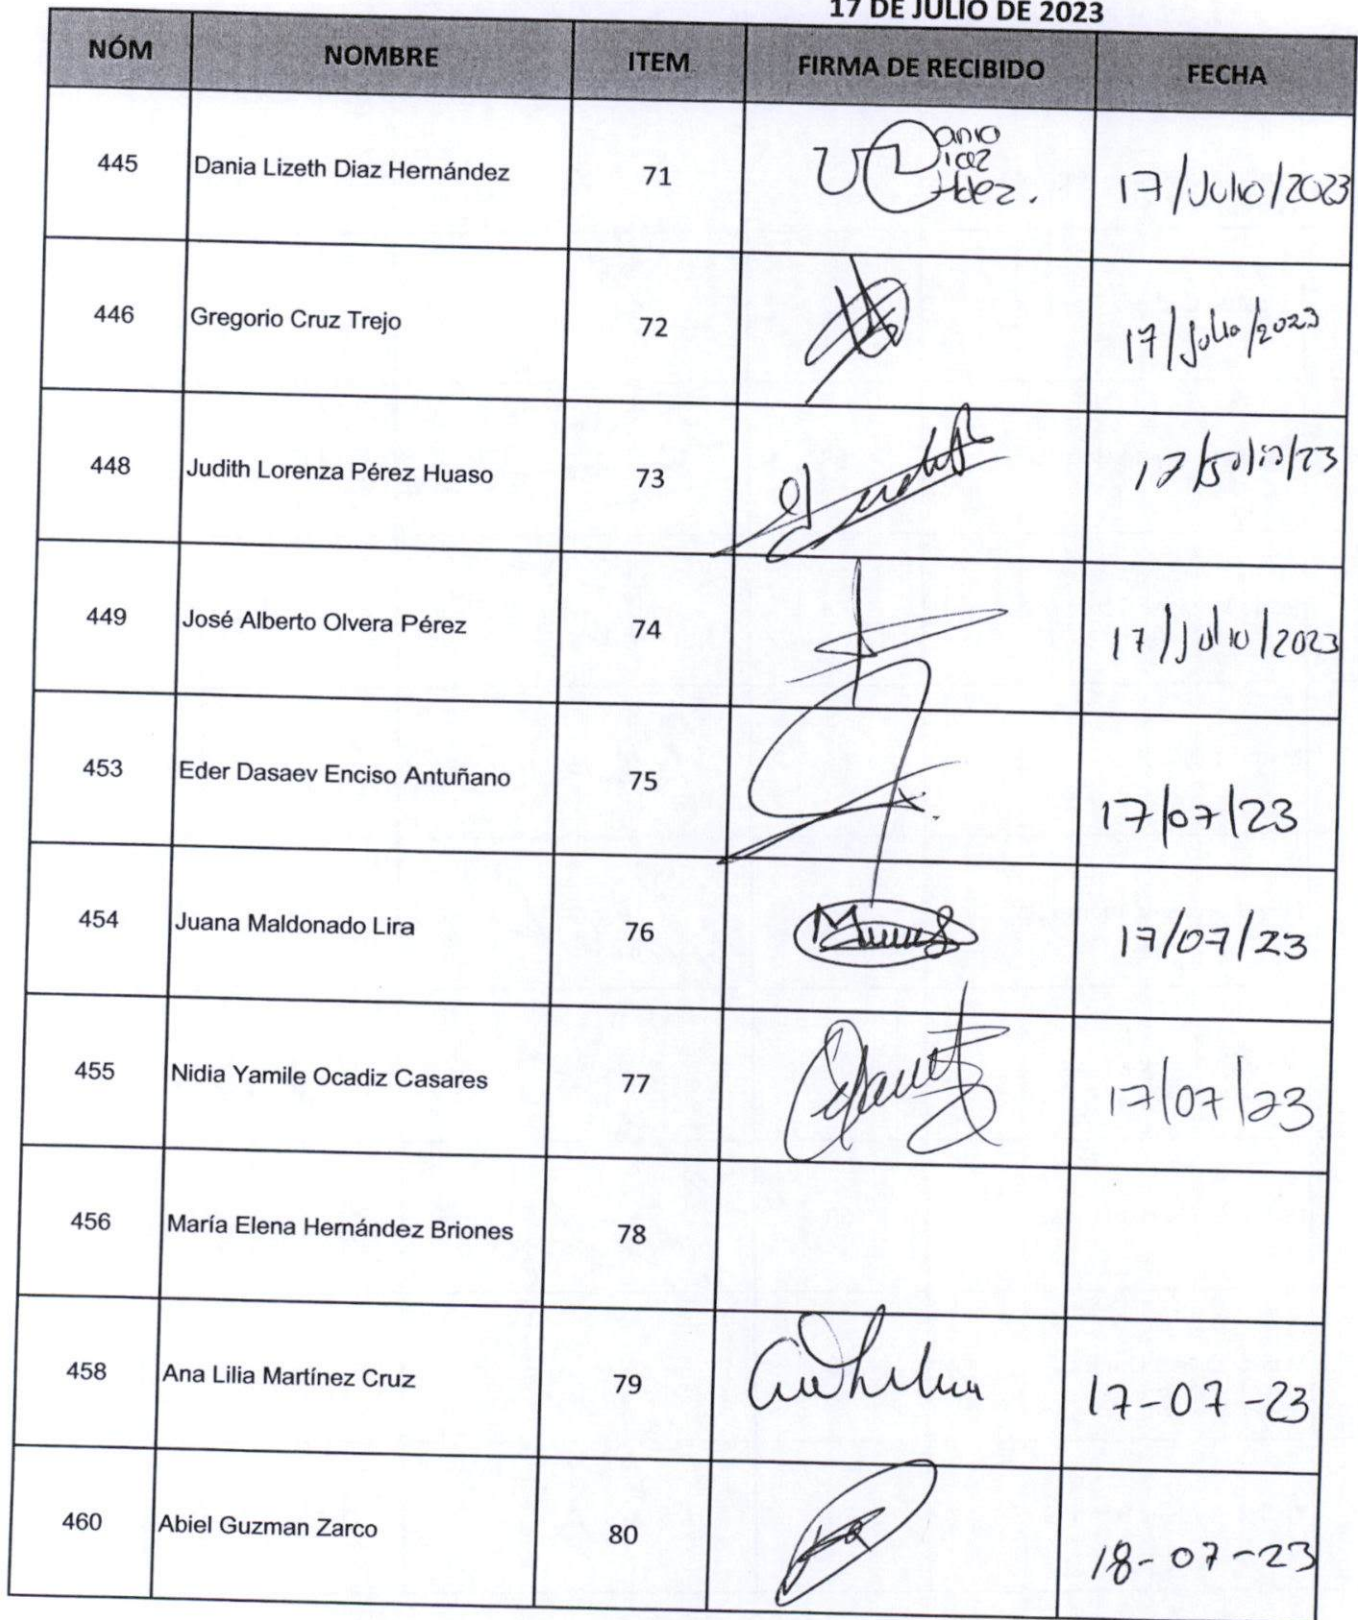 17 DE JULIO DE 2023
NÓM NOMBRE ITEM FIRMA DE RECIBIDO FECHA
445 Dania Lizeth Diaz Hernández 71 Dania Diaz Hdez. 17/Julio/2023
446 Gregorio Cruz Trejo 72 17/Julio/2023
448 Judith Lorenza Pérez Huaso 73 17/Julio/23
449 José Alberto Olvera Pérez 74 17/Julio/2023
453 Eder Dasaev Enciso Antuñano 75 17/07/23
454 Juana Maldonado Lira 76 17/07/23
455 Nidia Yamile Ocadiz Casares 77 17/07/23
456 María Elena Hernández Briones 78
458 Ana Lilia Martínez Cruz 79 17-07-23
460 Abiel Guzman Zarco 80 18-07-23